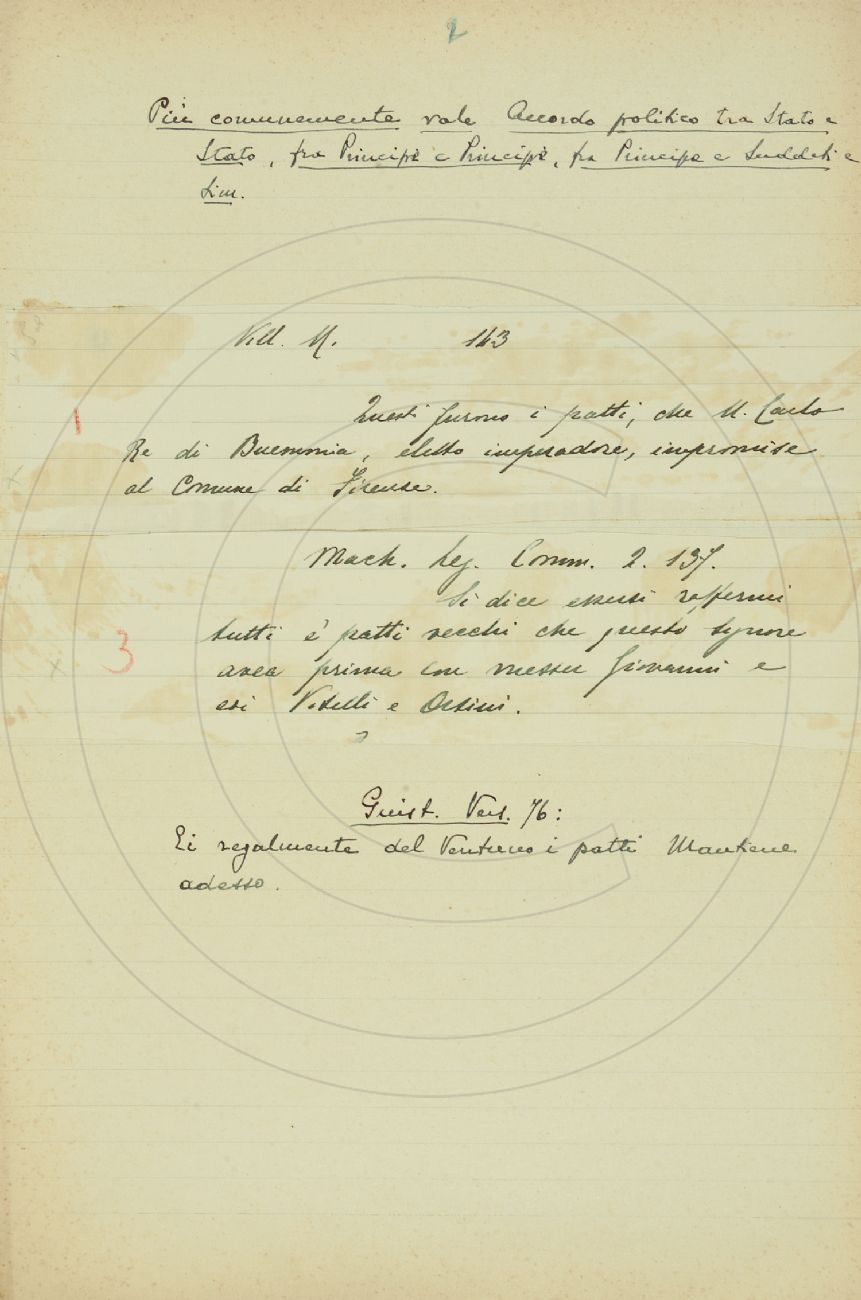 2
Più comunemente vale Accordo politico tra Stato e
Stato, fra Principe e Principe, fra Principe e Sudditi e
Sim.
Vill. M. 143
1
Questi furono i patti, che M. Carlo
Re di Buemmia, eletto imperadore, impromise
al Comune di Firenze.
Mach. Leg. Comm. 2. 137.
Si dice essersi raffermi
3
tutti e' patti vecchi che questo signore
avea prima con messer Giovanni e
coi Vitelli e Orsini.
Giust. Vers. 76:
Ei regalmente del Ventuno i patti Mantiene
adesso.